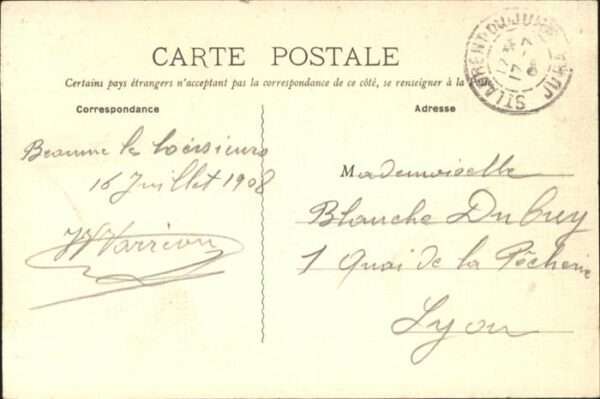 CARTE POSTALE
Certains pays étrangers n'acceptant pas la correspondance de ce côté, se renseigner à la
Correspondance
Adresse
ST LAURENT-DU-JURA
JURA
17-7
Beaume les
16 Juillet 1908
Mademoiselle
Blanche Dubuy
1 Quai de la Pêcherie
Lyon